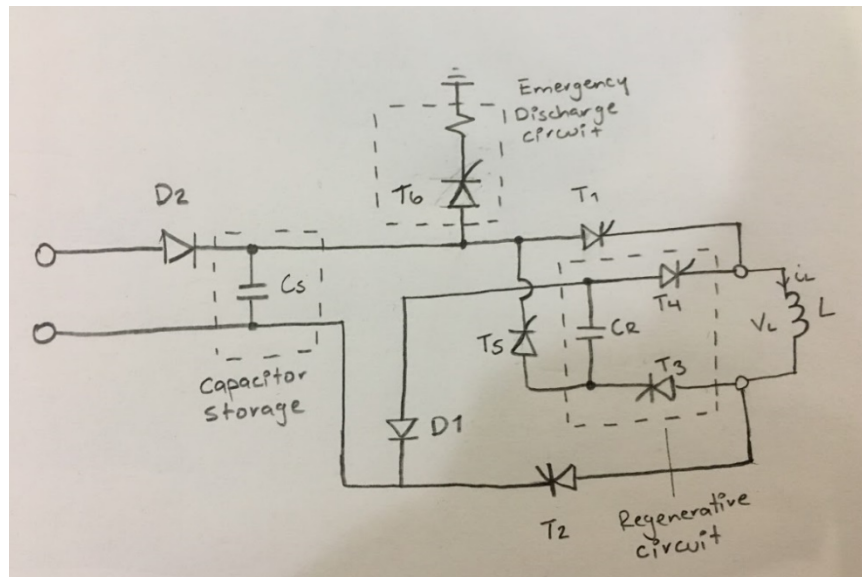 Emergency
Discharge
circuit
D2
T6
T1
Cs
T4
iL
VL
L
T5
CR
T3
Capacitor
storage
D1
T2
Regenerative
circuit